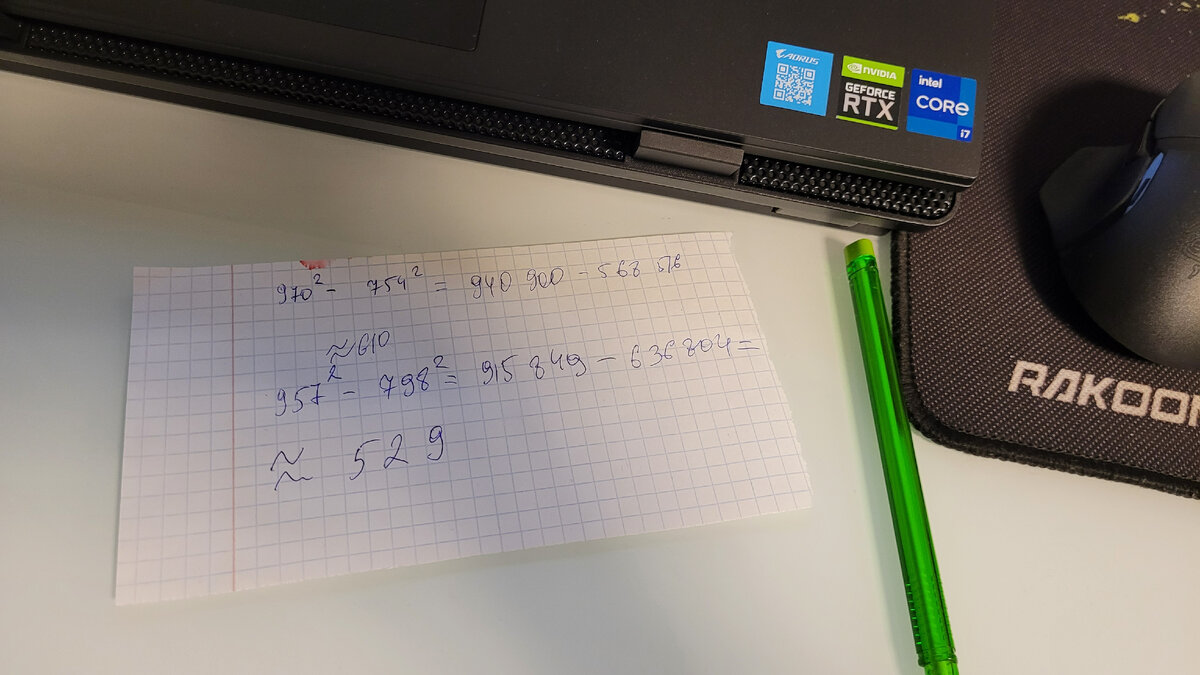 AORUS
NVIDIA
GEFORCE
RTX
intel
CORE
i7
970² - 754² = 940 900 - 568 516
≈ 610
957² - 798² = 915 849 - 636 804 =
≈ 529